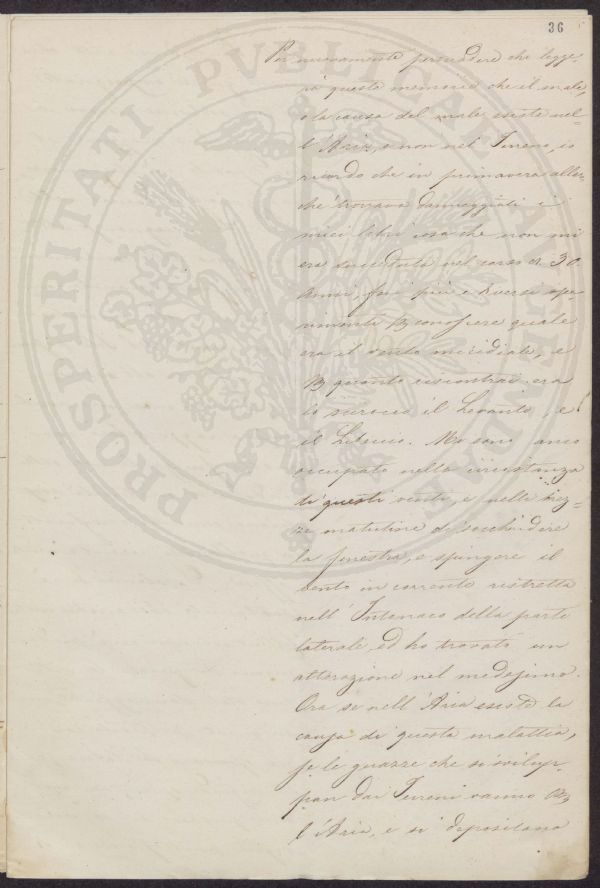 36
Per nuovamente persuadere chi legge-
rà queste memorie che il male,
o la causa del male esiste nel-
l'Aria, e non nel Terreno, io
ricordo che in primavera allor-
chè trovava danneggiati i
miei libri cosa che non mi
era succeduta nel corso di 30
Anni, feci più e diversi spe-
rimenti per conoscere quale
era il vento micidiale, e
per quanto riscontrai era
lo scirocco il Levante, e
il Libeccio. Mi sono anco
occupato nella circostanza
di questi venti, e nelle brez-
ze matutine di socchiudere
la finestra, e spingere il
vento in corrente ristretta
nell'Intonaco della parte
laterale, ed ho trovato un
alterazione nel medesimo.
Ora se nell'Aria esiste la
causa di questa malattia,
se le guazze che si svilup-
pan dai Terreni vanno per
l'Aria, e si depositano
PROSPERITATI PVBLICAE AVGENDAE